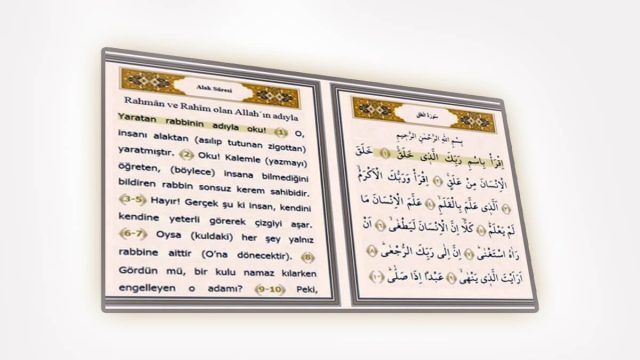 Alak Sûresi
Rahmân ve Rahîm olan Allah'ın adıyla
Yaratan rabbinin adıyla oku! (1) O,
insanı alaktan (asılıp tutunan zigottan)
yaratmıştır. (2) Oku! Kalemle (yazmayı)
öğreten, (böylece) insana bilmediğini
bildiren rabbin sonsuz kerem sahibidir.
(3-5) Hayır! Gerçek şu ki insan, kendini
kendine yeterli görerek çizgiyi aşar.
(6-7) Oysa (kuldaki) her şey yalnız
rabbine aittir (O'na dönecektir). (8)
Gördün mü, bir kulu namaz kılarken
engelleyen o adamı? (9-10) Peki,
سُورَةُ الْعَلَقِ
بِسْمِ اللّٰهِ الرَّحْمٰنِ الرَّحِيمِ
اِقْرَأْ بِاسْمِ رَبِّكَ الَّذ۪ي خَلَقَۚ ﴿١﴾ خَلَقَ
الْاِنْسَانَ مِنْ عَلَقٍۚ ﴿٢﴾ اِقْرَأْ وَرَبُّكَ الْاَكْرَمُۙ
﴿٣﴾ اَلَّذ۪ي عَلَّمَ بِالْقَلَمِۙ ﴿٤﴾ عَلَّمَ الْاِنْسَانَ مَا
لَمْ يَعْلَمْۜ ﴿٥﴾ كَلَّٓا اِنَّ الْاِنْسَانَ لَيَطْغٰىۙ ﴿٦﴾ اَنْ
رَاٰهُ اسْتَغْنٰىۜ ﴿٧﴾ اِنَّ اِلٰى رَبِّكَ الرُّجْعٰىۜ ﴿٨﴾
اَرَاَيْتَ الَّذ۪ي يَنْهٰىۙ ﴿٩﴾ عَبْداً اِذَا صَلّٰىۜ ﴿١٠﴾